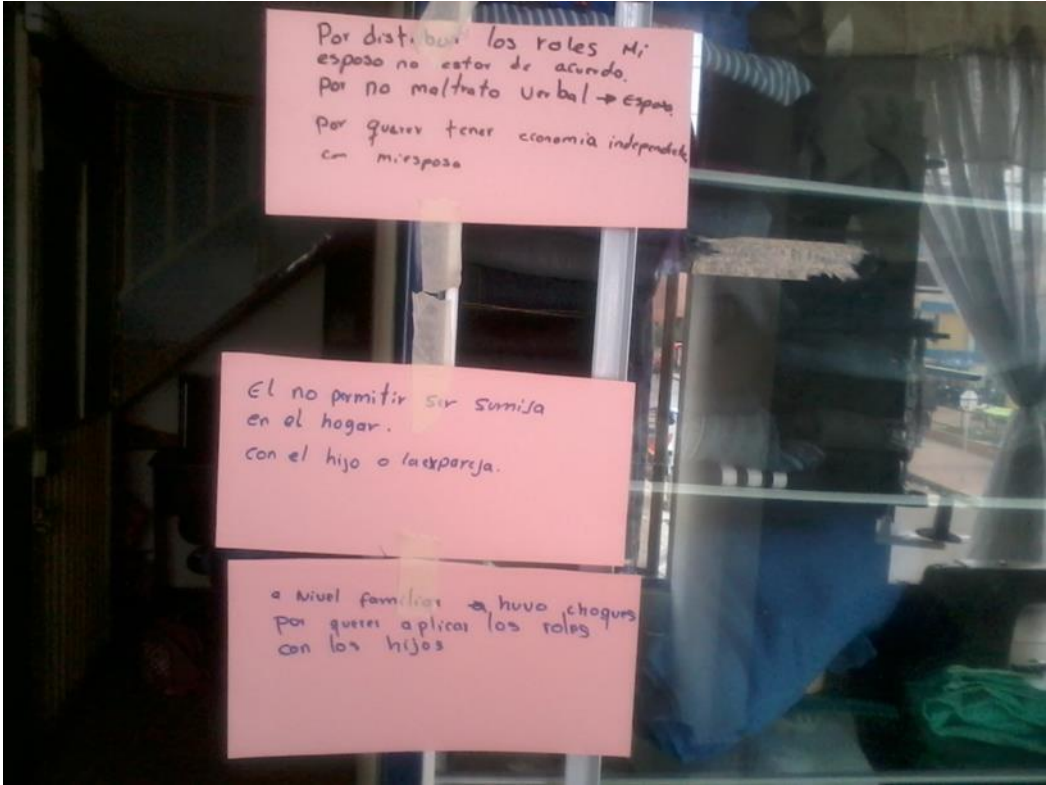 Por distribuir los roles Mi
esposo no estar de acuerdo.
Por no maltrato verbal → Esposo
por querer tener economia independiete
con mi esposo
El no permitir ser sumisa
en el hogar.
con el hijo o la expareja.
a Nivel familiar → huvo choques
por querer aplicar los roles
con los hijos